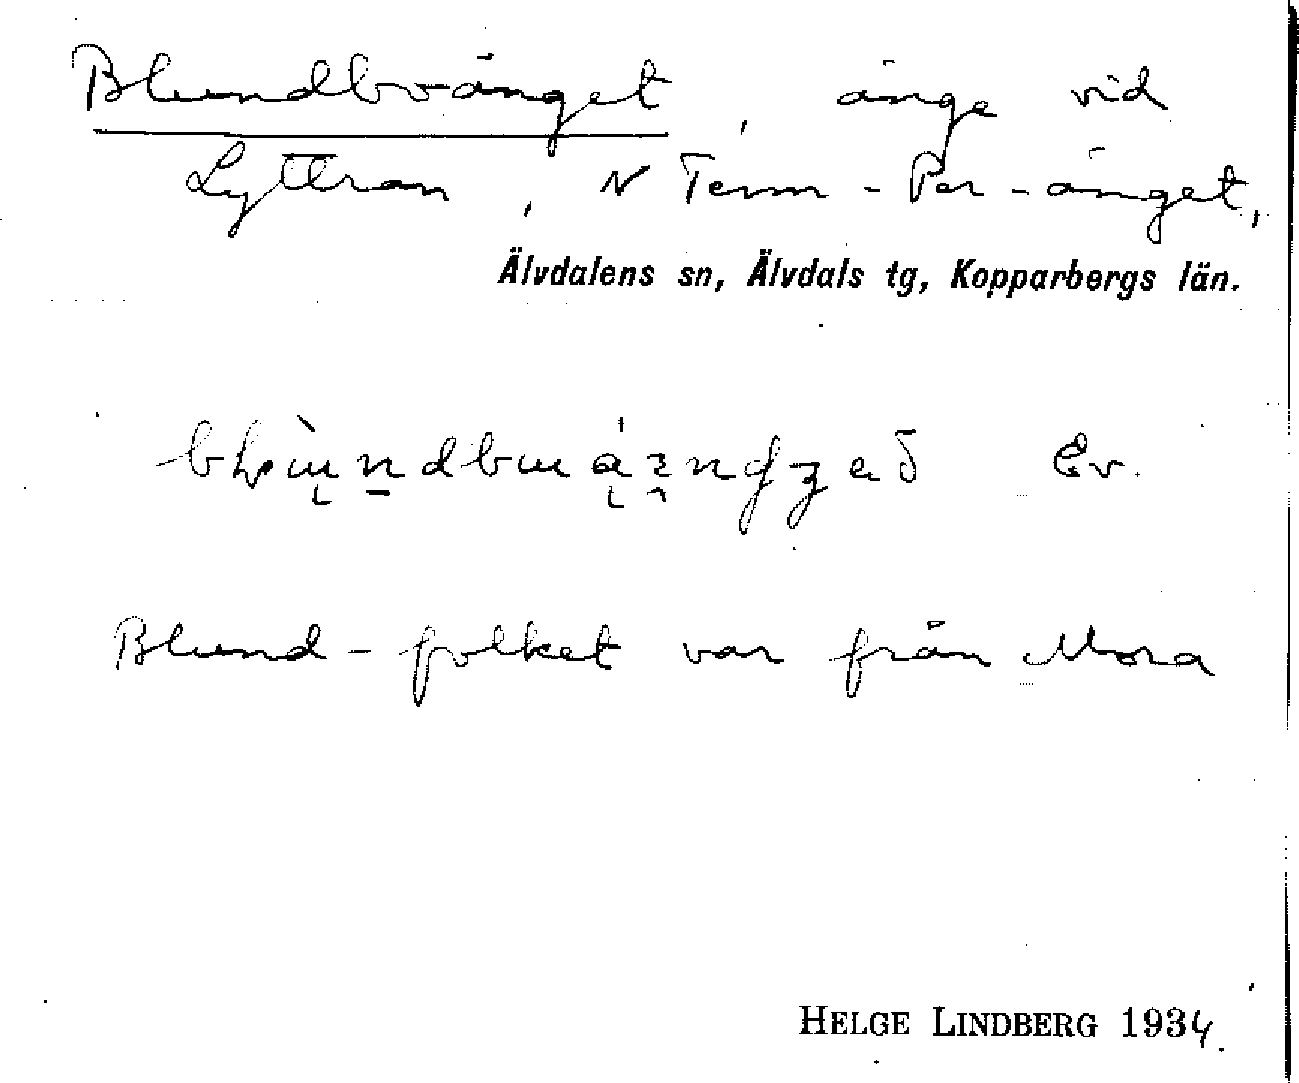 Blundboänget, änge vid
Lyttran, N Tenn-Per-änget,
Älvdalens sn, Älvdals tg, Kopparbergs län.
Ev.
Blund-folket var från Mora
HELGE LINDBERG 1934.